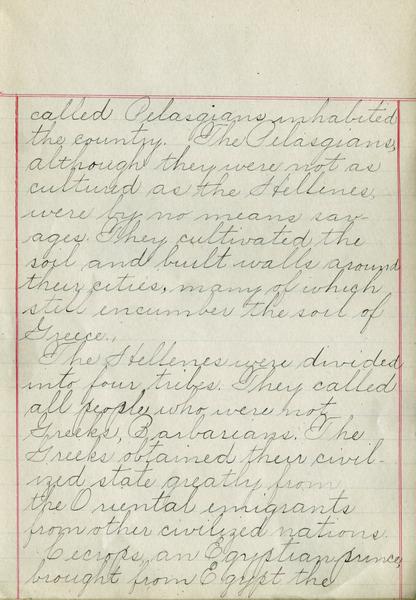 called Pelasgians inhabited
the country. The Pelasgians,
although they were not as
cultured as the Hellenes,
were by no means sav-
ages. They cultivated the
soil and built walls around
their cities, many of which
still encumber the soil of
Greece.
The Hellenes were divided
into four tribes. They called
all people who were not
Greeks, Barbarians. The
Greeks obtained their civil-
ized state greatly from
the Oriental emigrants
from other civilized nations.
Cecrops, an Egyptian prince,
brought from Egypt the